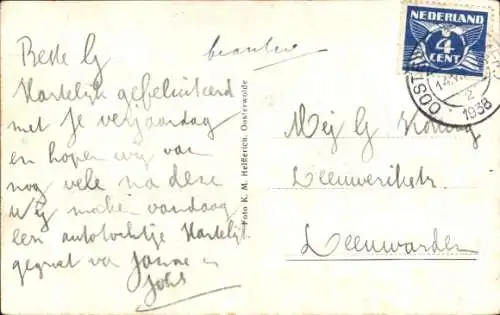 Beste G
Hartelijk gefeliciteerd
met je verjaardag
en hopen wij van
nog vele na deze
Wij maken vandaag
een autotochtje Hartelijk
gegroet van Janne en
Joh's
Foto K. M. Helfferich, Oosterwolde
NEDERLAND
4
CENT
OOST
1938
Mej G Koning
Leeuwerikstr.
Leeuwarden